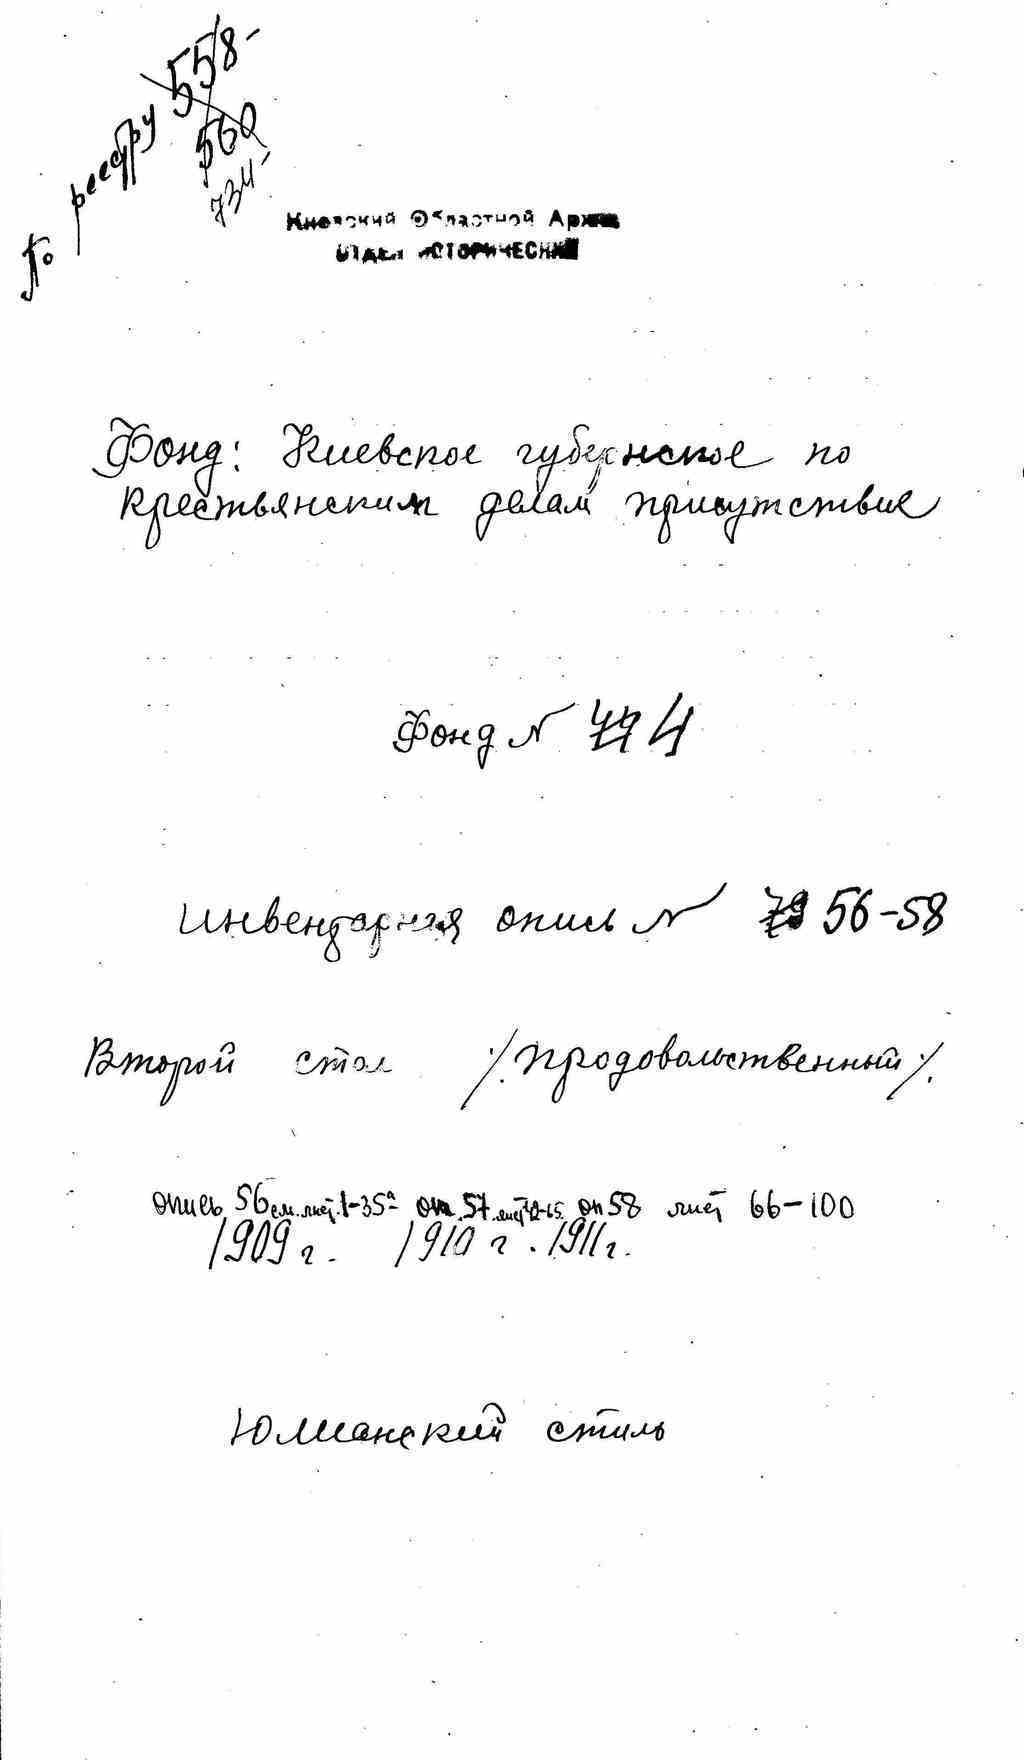 По реестру 558-
560
734-
Киевский Областной Архив
ОТДЕЛ ИСТОРИЧЕСКИЙ
Фонд: Киевское губернское по
крестьянским делам присутствие
Фонд N 4
Инвентарная опись N 79 56-58
Второй стол /.продовольственный/.
опись 56 см. лист. 1-35а оп. 57 лист оп 58 лист 66-100
1909 г. 1910 г. 1911 г.
Юлианский стиль